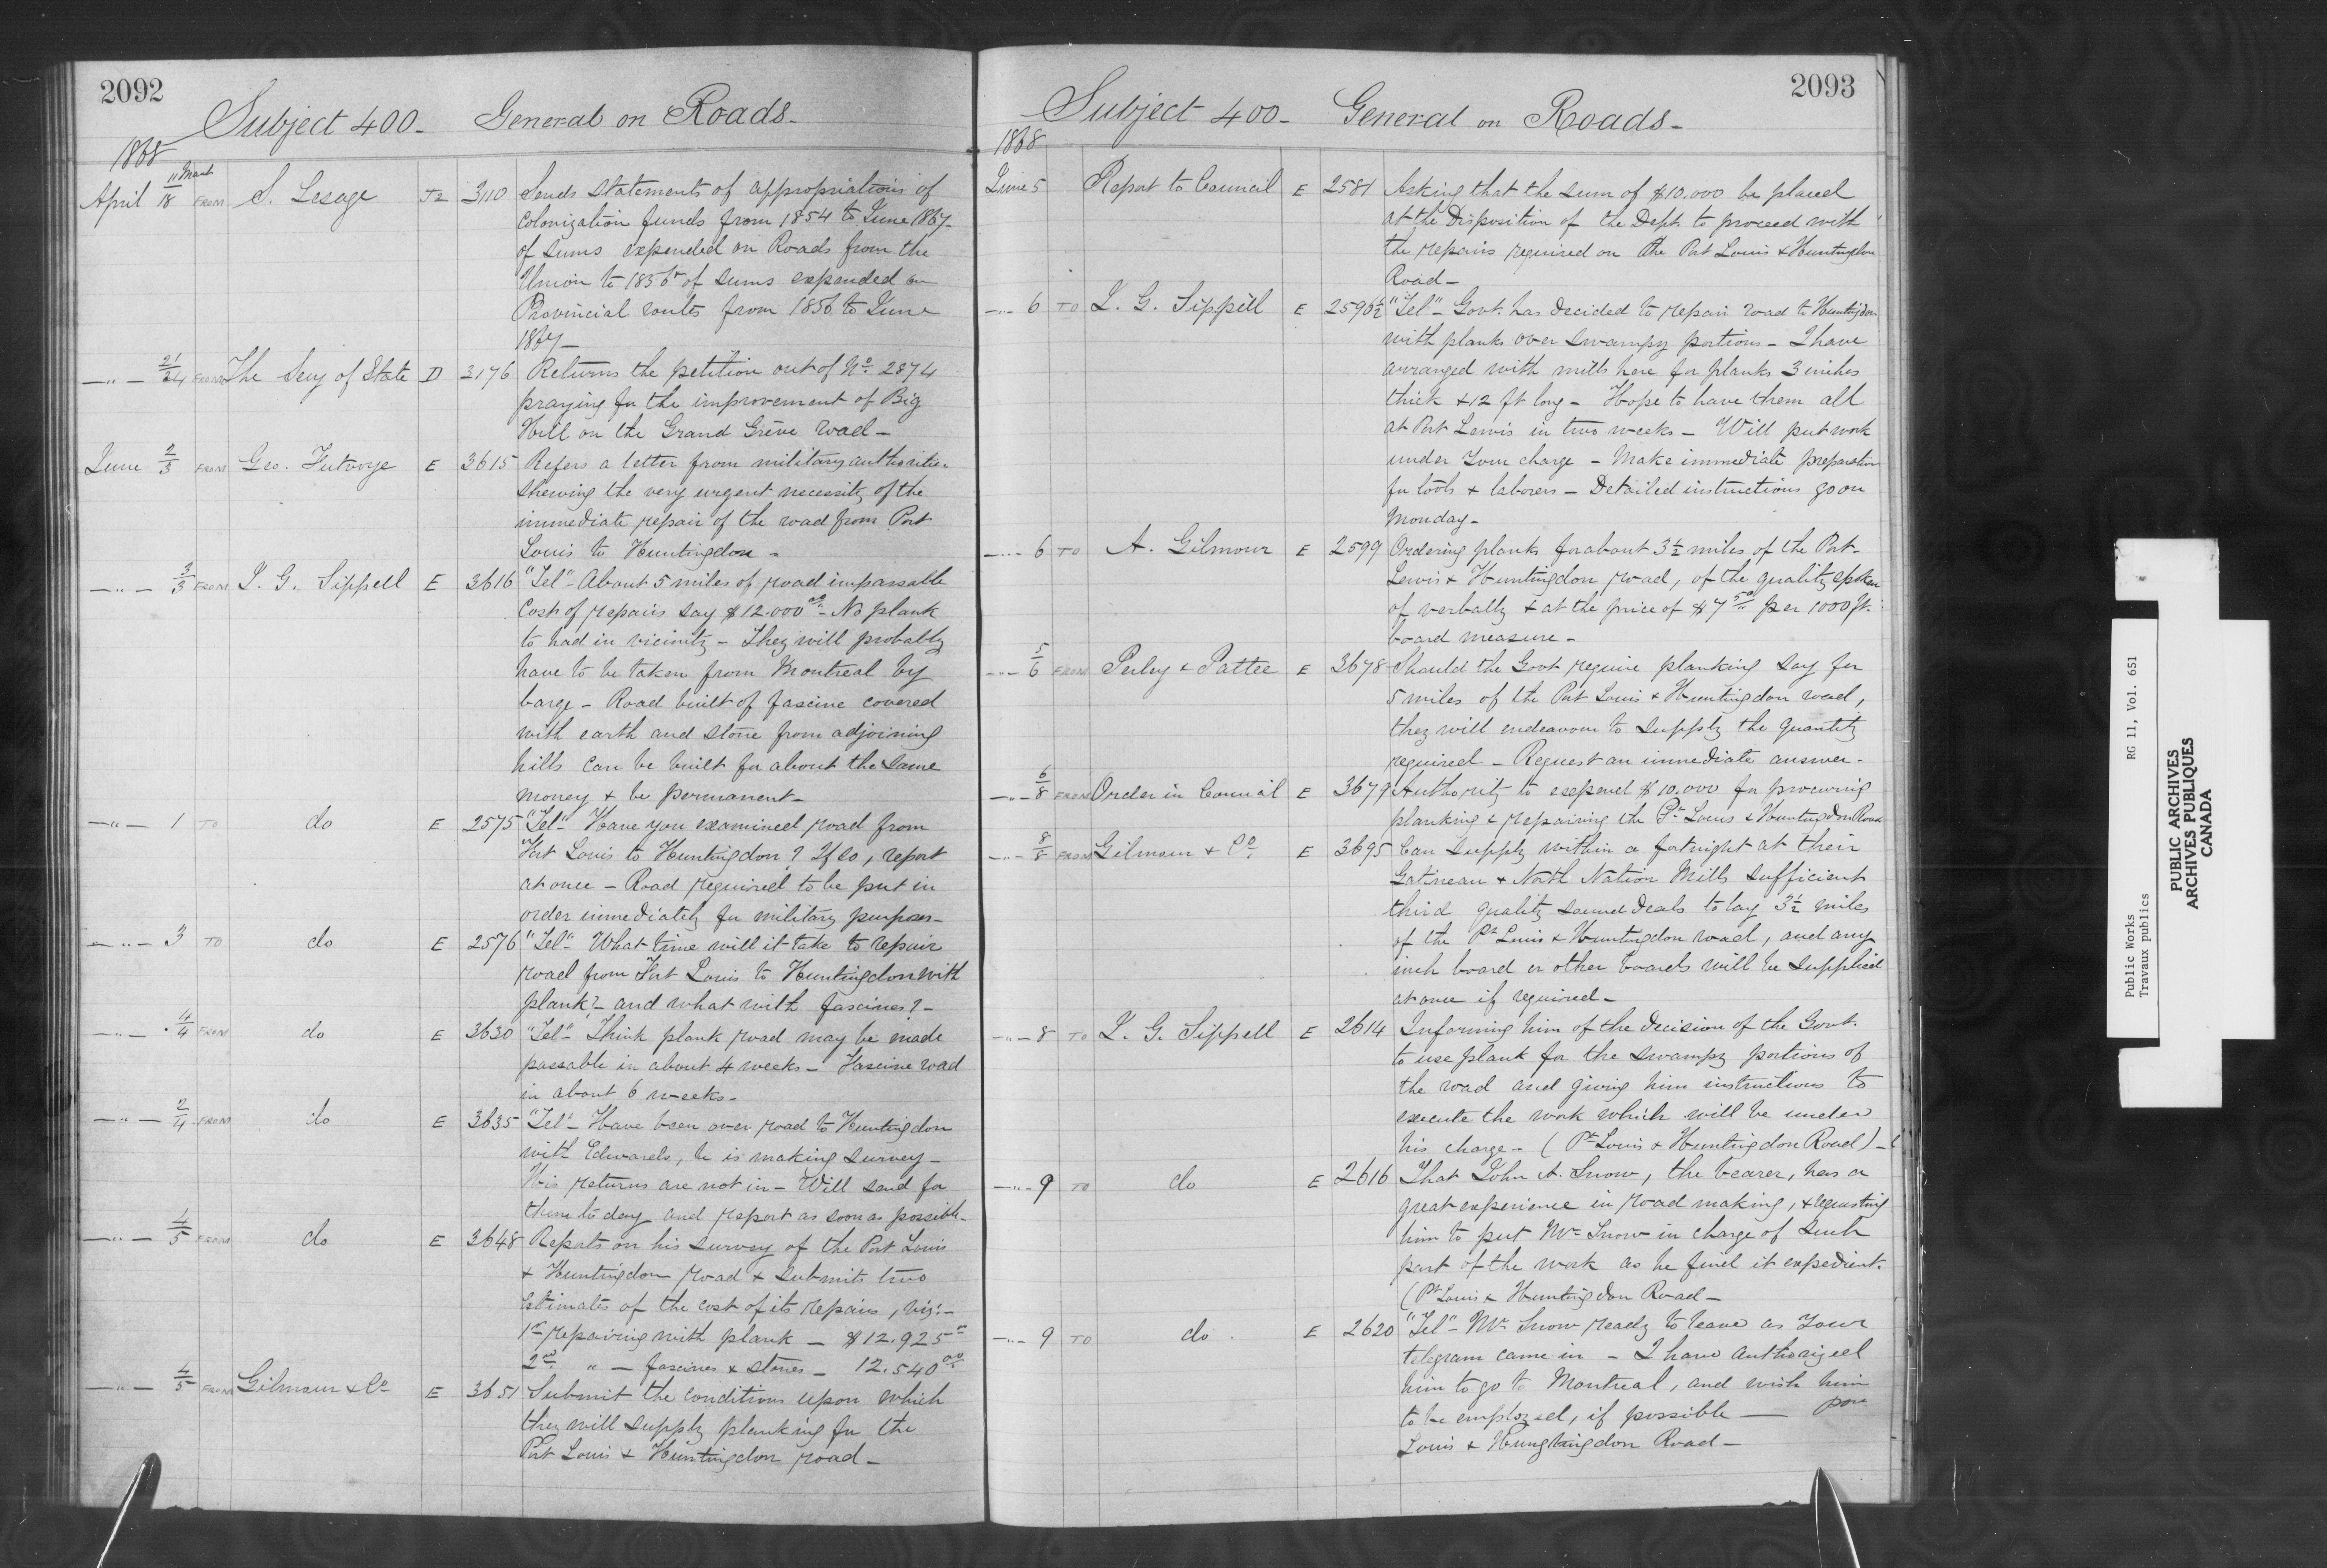 2092
Subject 400 - General on Roads -
1868
11 March
April 18 FROM S. Lesage J2 3110 Sends statements of appropriations of
colonization funds from 1854 to June 1867
of sums expended on Roads from the
Union to 1856 of sums expended on
Provincial routes from 1856 to June
1867 -
- " - 21/24 FROM The Secy of State D 3176 Returns the petition out of No. 2874
praying for the improvement of Big
Hill on the Grand Grève road -
June 2/3 FROM Geo. Futvoye E 3615 Refers a letter from military authorities
shewing the very urgent necessity of the
immediate repair of the road from Port
Louis to Huntingdon -
- " - 3/3 FROM L. G. Sippell E 3616 "Tel" - About 5 miles of road impassable
Cost of repairs say $12.000 00 - No plank
to had in vicinity - They will probably
have to be taken from Montreal by
barge - Road built of fascine covered
with earth and stone from adjoining
hills can be built for about the same
money & be permanent -
- " - 1 TO do E 2575 "Tel" - Have you examined road from
Port Louis to Huntingdon? If so, report
at once - Road required to be put in
order immediately for military purposes -
- " - 3 TO do E 2576 "Tel" - What time will it take to repair
road from Port Louis to Huntingdon with
plank? - and what with fascines? -
- " - 4/4 FROM do E 3630 "Tel" - Think plank road may be made
passable in about 4 weeks - Fascine road
in about 6 weeks -
- " - 2/4 FROM do E 3635 "Tel" - Have been over road to Huntingdon
with Edwards, he is making survey -
His returns are not in - Will send for
them to day and report as soon as possible -
- " - 4/5 FROM do E 3648 Reports on his survey of the Port Louis
& Huntingdon road & submits two
Estimates of the cost of its repairs, viz: -
1st repairing with plank - $12.925
2nd " - fascines & stones - 12.540 00
- " - 4/5 FROM Gilmour & Co E 3651 Submit the conditions upon which
they will supply planking for the
Port Louis & Huntingdon road -
2093
Subject 400 - General on Roads -
1868
June 5 Report to Council E 2581 Asking that the sum of $10.000 be placed
at the Disposition of the Dept. to proceed with
the repairs required on the Port Louis & Huntingdon
Road -
- " - 6 TO L. G. Sippell E 2596½ "Tel" - Govt. has decided to repair road to Huntingdon
with planks over swampy portions - I have
arranged with mills here for planks 3 inches
thick & 12 ft long - Hope to have them all
at Port Lewis in two weeks - Will put work
under your charge - Make immediate preparation
for tools & laborers - Detailed instructions go on
Monday -
- " - 6 TO A. Gilmour E 2599 Ordering planks for about 3½ miles of the Port
Lewis & Huntingdon road, of the quality spoken
of verbally & at the price of $7 50 per 1000 ft.
board measure -
- " - 5/6 FROM Perley & Pattee E 3678 Should the Govt require planking say for
5 miles of the Port Louis & Huntingdon road,
they will endeavour to supply the quantity
required - Request an immediate answer -
- " - 6/8 FROM Order in Council E 3679 Authority to expend $10.000 for procuring
planking & repairing the Pt Louis & Huntingdon Road
- " - 8/8 FROM Gilmour & Co. E 3695 Can supply within a fortnight at their
Gatineau & North Nation Mills sufficient
third quality sound deals to lay 3½ miles
of the Pt Louis & Huntingdon road, and any
inch board or other boards will be supplied
at once if required -
- " - 8 TO L. G. Sippell E 2614 Informing him of the decision of the Govt.
to use plank for the swampy portions of
the road and giving him instructions to
execute the work which will be under
his charge - (Pt Louis & Huntingdon Road) -
- " - 9 TO do E 2616 That John A. Snow, the bearer, has a
great experience in road making, & requesting
him to put Mr Snow in charge of such
part of the work as he find it expedient.
(Pt Louis & Huntingdon Road -
- " - 9 TO do E 2620 "Tel" - Mr Snow ready to leave as your
telegram came in - I have authorized
him to go to Montreal, and wish him
to be employed, if possible -
Louis & Hungtingdon Road -
Public Works RG 11, Vol. 651
Travaux publics
PUBLIC ARCHIVES
ARCHIVES PUBLIQUES
CANADA